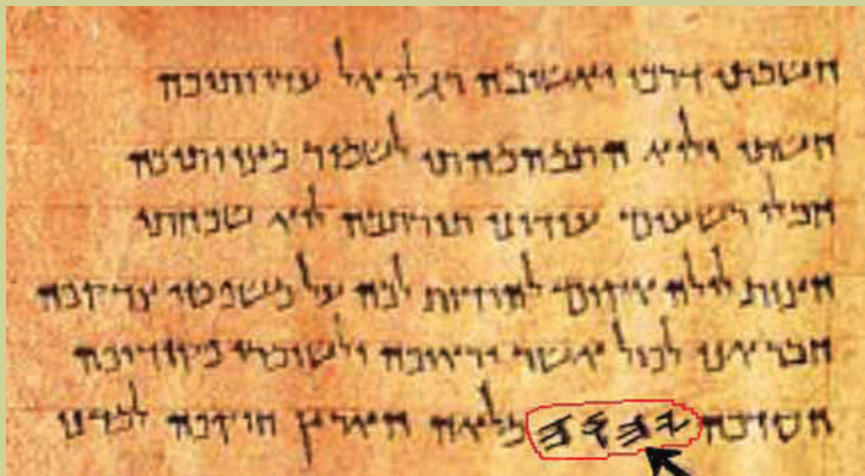 חשבתי דרכי ואשיבה רגלי אל עדוותיכה
חשתי ולוא התמהמהתי לשמור מצוותיכה
חבלי רשעים עודוני תורתכה לוא שכחתי
חצות לילה אקום להודות לכה על משפטי צדקכה
חבר אני לכול אשר יראוכה ולשומרי פיקודיכה
חסדכה 𐤉𐤄𐤅𐤄 מלאה הארץ חוקיכה למדני